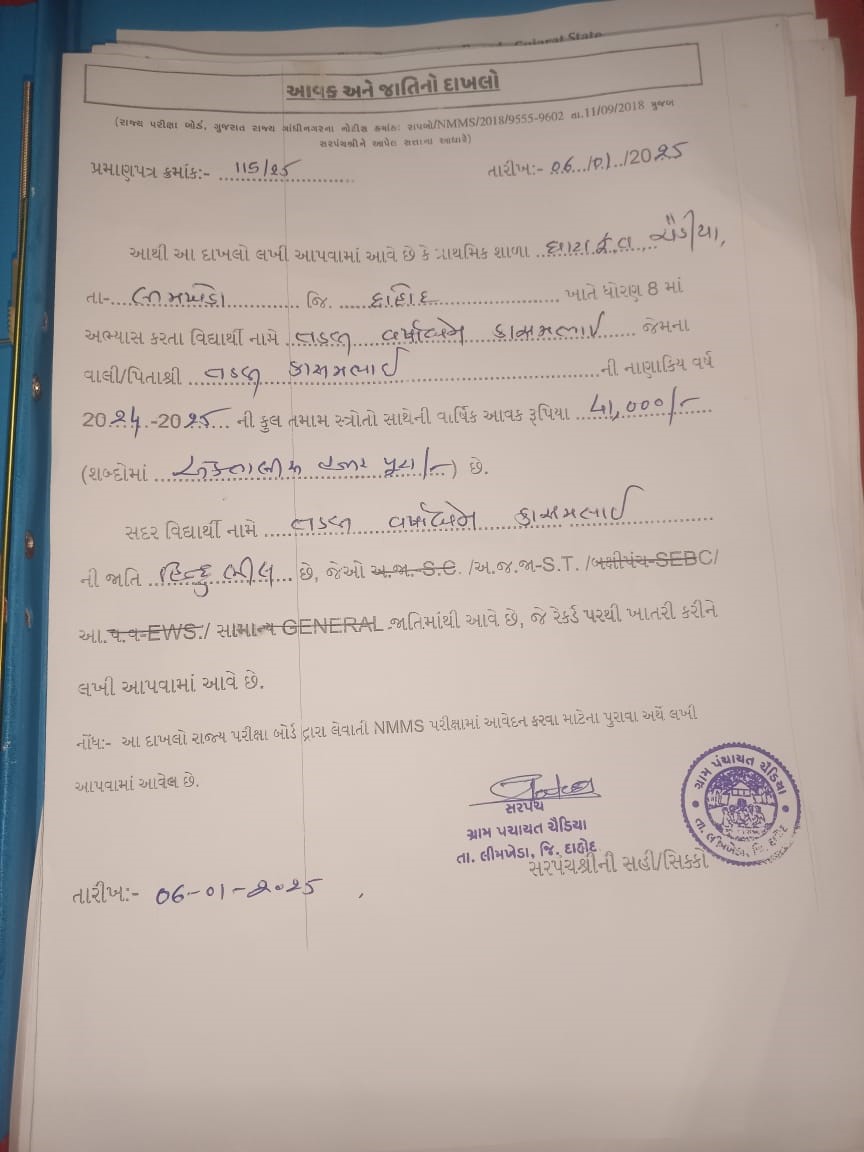 Gujarat State
આવક અને જાતિનો દાખલો
(રાજ્ય પરીક્ષા બોર્ડ, ગુજરાત રાજ્ય ગાંધીનગરના નોટીસ ક્રમાંક: રાપબો/NMMS/2018/9555-9602 તા.11/09/2018 મુજબ
સરપંચશ્રીને આપેલ સત્તાના આધારે)
પ્રમાણપત્ર ક્રમાંક:- 115/25
તારીખ:- 06/01/2025
આથી આ દાખલો લખી આપવામાં આવે છે કે પ્રાથમિક શાળા ચૈડીયા,
તા- લીમખેડા જિ. દાહોદ ખાતે ધોરણ 8 માં
અભ્યાસ કરતા વિદ્યાર્થી નામે તડવી વર્ષાબેન કાસમભાઈ જેમના
વાલી/પિતાશ્રી તડવી કાસમભાઈ ની નાણાકિય વર્ષ
2024-2025 ની કુલ તમામ સ્ત્રોતો સાથેની વાર્ષિક આવક રૂપિયા 41,000/-
(શબ્દોમાં એકતાલીસ હજાર પૂરા/-) છે.
સદર વિદ્યાર્થી નામે તડવી વર્ષાબેન કાસમભાઈ
ની જાતિ હિન્દુ ભીલ છે, જેઓ અ.જા.-S.C. /અ.જ.જા-S.T. /બક્ષીપંચ-SEBC/
આ.પ.વ-EWS./ સામાન્ય GENERAL જાતિમાંથી આવે છે, જે રેકર્ડ પરથી ખાતરી કરીને
લખી આપવામાં આવે છે.
નોંધ:- આ દાખલો રાજ્ય પરીક્ષા બોર્ડ દ્વારા લેવાતી NMMS પરીક્ષામાં આવેદન કરવા માટેના પુરાવા અર્થે લખી
આપવામાં આવેલ છે.
સરપંચ
ગ્રામ પંચાયત ચૈડિયા
તા. લીમખેડા, જિ. દાહોદ
ગ્રામ પંચાયત ચૈડિયા
તા. લીમખેડા, જિ. દાહોદ
સરપંચશ્રીની સહી/સિક્કો
તારીખ:- 06-01-2025